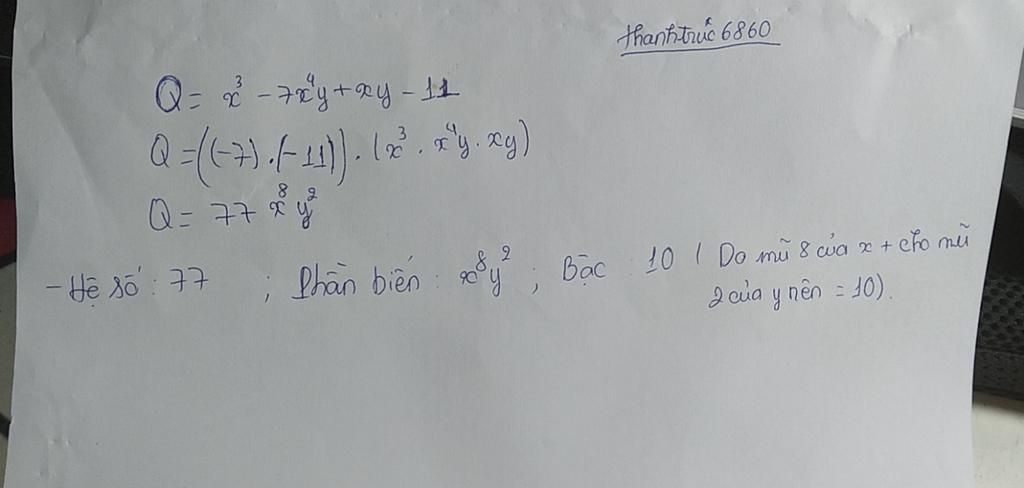 thanhtruc6860
Q = x³ - 7x⁴y + xy - 11
Q = ((-7) . (-11)) . (x³ . x⁴y . xy)
Q = 77 x⁸ y²
- Hệ số : 77 ; Phần biến : x⁸y² ; Bậc : 10 ( Do mũ 8 của x + cho mũ
2 của y nên = 10).